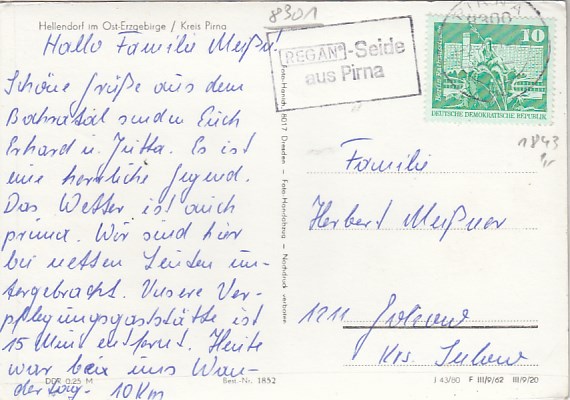 Hellendorf im Ost-Erzgebirge / Kreis Pirna
8301
Hallo Familie Meßner!
Schöne Grüße aus dem
Bahratal senden Euch
Erhard u. Jutta. Es ist
eine herrliche Gegend.
Das Wetter ist auch
prima. Wir sind hier
bei netten Leuten un-
tergebracht. Unsere Ver-
pflegungsgaststätte ist
15 Min entfernt. Heute
war bei uns Wan-
dertag. 10 Km
DDR 0,25 M
Best.-Nr. 1852
Foto-Handabzug - Nachdruck verboten
8017 Dresden
REGAN®-Seide
aus Pirna
PIRNA
8300
10
DEUTSCHE DEMOKRATISCHE REPUBLIK
1843
Familie
Herbert Meßner
1211 Golzow
Krs. Seelow
J 43/80 F III/9/62 III/9/20